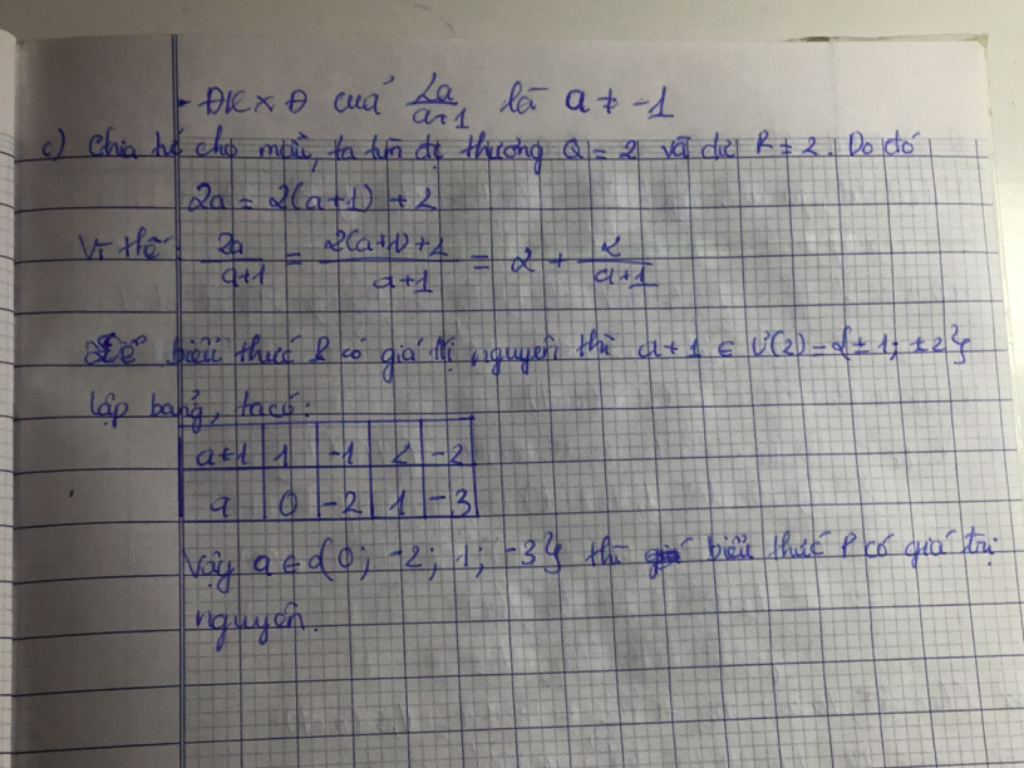 - ĐKXĐ của 2a/a+1 là a ≠ -1
c) Chia tử cho mẫu, ta tìm đc thương Q = 2 và dư R = 2. Do đó
2a = 2(a+1) + 2
Vì thế 2a/a+1 = 2(a+1)+2/a+1 = 2 + 2/a+1
Để biểu thức P có giá trị nguyên thì a+1 ∈ Ư(2) = {±1; ±2}
Lập bảng, ta có:
a+1 1 -1 2 -2
a 0 -2 1 -3
Vậy a ∈ {0; -2; 1; -3} thì biểu thức P có giá trị
nguyên.